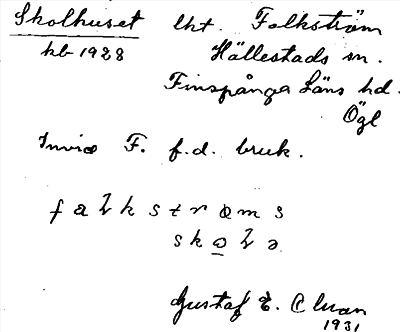 Skolhuset lht. Falkström
kb 1928 Hällestads sn.
Finspånga Läns hd.
Ögl
Invid F. f.d. bruk.
falkstroms
skola
Gustaf E.
1931